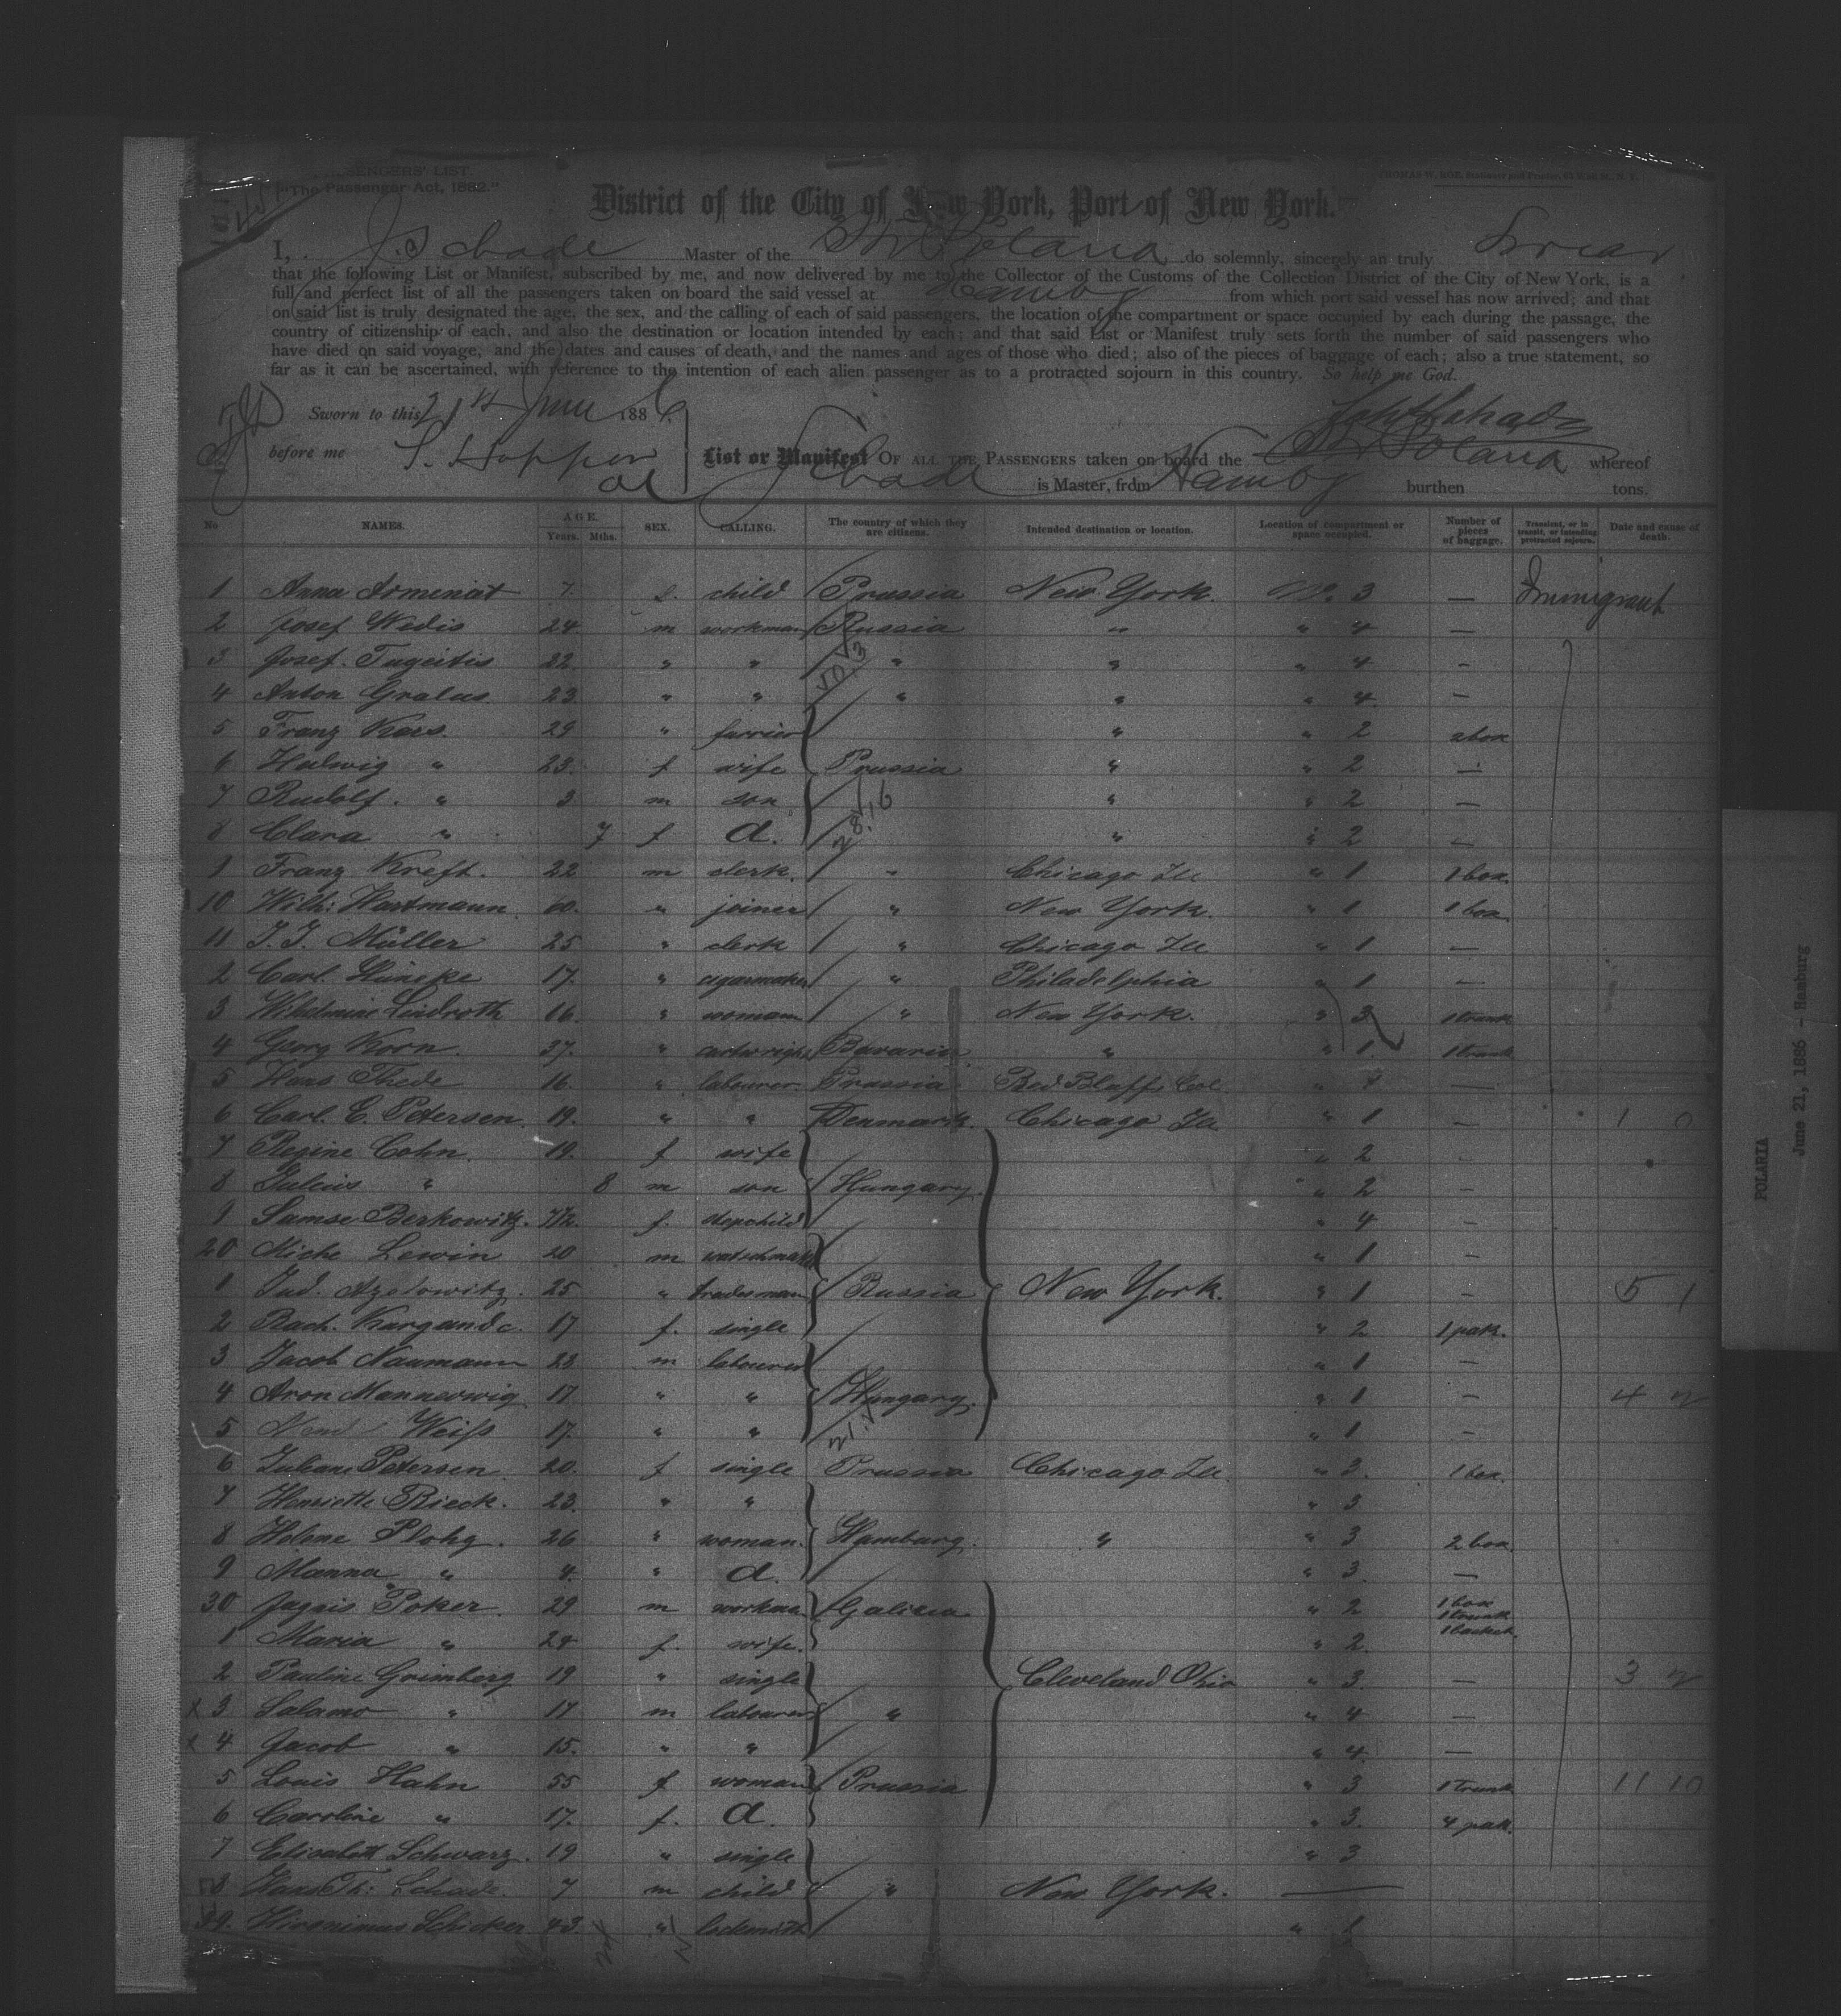 PASSENGERS' LIST.
"The Passenger Act, 1882."
THOMAS W. ROE, Stationer and Printer, N. Y.
District of the City of New York, Port of New York.
I, J. Schade Master of the SS Polaria do solemnly, sincerely an truly Swear
that the following List or Manifest, subscribed by me, and now delivered by me to the Collector of the Customs of the Collection District of the City of New York, is a
full and perfect list of all the passengers taken on board the said vessel at Hambg from which port said vessel has now arrived; and that
on said list is truly designated the age, the sex, and the calling of each of said passengers, the location of the compartment or space occupied by each during the passage, the
country of citizenship of each, and also the destination or location intended by each; and that said List or Manifest truly sets forth the number of said passengers who
have died on said voyage, and the dates and causes of death, and the names and ages of those who died; also of the pieces of baggage of each; also a true statement, so
far as it can be ascertained, with reference to the intention of each alien passenger as to a protracted sojourn in this country. So help me God.
Sworn to this 21st June 1886
before me S. Hopper
List or Manifest OF ALL THE PASSENGERS taken on board the SS Polaria whereof
Schade is Master, from Hambg burthen tons.
No NAMES. AGE. Years. Mths. SEX. CALLING. The country of which they are citizens. Intended destination or location. Location of compartment or space occupied. Number of pieces of baggage. Transient, or in transit, or intending protracted sojourn. Date and cause of death.
1 Anna Armeniat 7 f. child Prussia New York. No. 3 — Immigrant
2 Josef Wedis 24 m workman Russia " " 4 —
3 Josef Tugeitis 22 " " " " " 4 —
4 Anton Gralus 23 " " " " " 4 —
5 Franz Kaes. 29 " furrier " " 2 a box
6 Hedwig " 23 f wife Prussia " " 2 —
7 Rudolf. " 3 m son " " 2 —
8 Clara " 7 f d. " " 2 —
1 Franz Kreft. 22 m clerk. " Chicago Ill " 1 1 box.
10 Wilh: Hartmann 60. " joiner " New York. " 1 1 box
11 J. J. Müller 25 " clerk " Chicago Ill " 1 —
2 Carl Hüneke 17. " cigarmaker " Philadelphia " 1 —
3 Wilhelmine Lindroth 16 " woman " New York. " 3 1 trunk
4 Georg Korn. 37. " cartwright Bavaria " " 1. 1 trunk
5 Hans Thede 16. " labourer Prussia Red Bluff, Cal. " 1 —
6 Carl. E. Petersen. 19. " " Denmark. Chicago Ill " 1 — 1 0
7 Regine Cohn. 19. f wife " 2 -
8 Julius " 8 m son Hungary. " 2 —
9 Samse Berkowitz. f. stepchild " 4 -
20 Kiche Lewin 20 m watchmaker " 1 -
1 Jud. Azelowitz. 25 " tradesman Russia New York. " 1 - 5 1
2 Rach. Kurgandc. 17 f. single " 2 1 pak.
3 Jacob Naumann 23 m labourer " 1 -
4 Aron Mannerwig 17 " " Hungary. " 1 - 4 2
5 Weiss 17. " " " 1 -
6 Juliane Petersen. 20. f single Prussia Chicago Ill. " 3. 1 box.
7 Henriette Rieck. 23. " " " 3
8 Helene Plohg. 26 " woman. Hamburg. " " 3 2 box.
9 Manna " 4. " d. " 3 —
30 Jagais Poker. 29 m workman Galizia " 2 1 box 1 trunk
1 Maria " 24 f. wife. " 2. 1 basket.
2 Pauline Grimberg 19 " single Cleveland Ohio " 3. — 3 2
x 3 Salamo " 17 m labourer " " 4 —
x 4 Jacob " 15. " " " 4. —
5 Louis Hahn 55 f woman Prussia " 3 1 trunk 11 10
6 Caroline " 17. f. d. " 3. 4 pak.
7 Elisabeth Schwarz. 19 " single " 3
8 Hans Th: Schade. 7 m child " New York. —
39. Hironimus Schicker 43. " locksmith " 1
POLARIA
June 21, 1886 - Hamburg